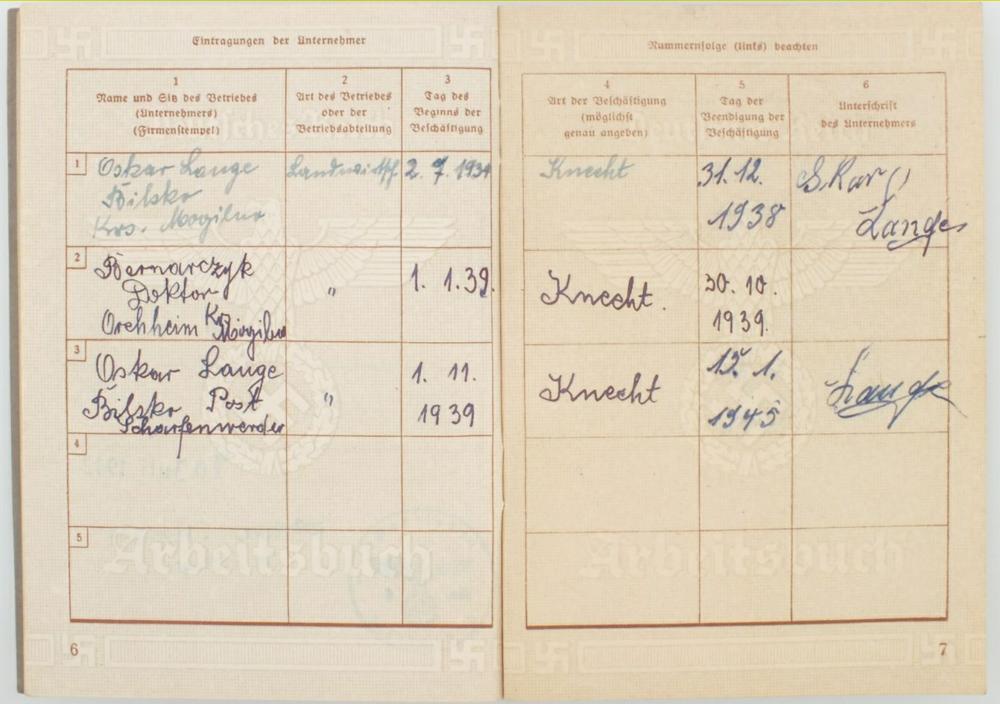 Eintragungen der Unternehmer
1
Name und Sitz des Betriebes
(Unternehmers)
(Firmenstempel)
2
Art des Betriebes
oder der
Betriebsabteilung
3
Tag des
Beginns der
Beschäftigung
1
Oskar Lange
Bilsko
Krs. Mogilno
2. 7. 1934
2
Bernarczyk
Doktor
Orchheim Krs Mogilno
"
1. 1.39.
3
Oskar Lange
Bilsko Post
Scharfenwerder
"
1. 11.
1939
4
5
Arbeitsbuch
6
Nummernfolge (links) beachten
4
Art der Beschäftigung
(möglichst
genau angeben)
5
Tag der
Beendigung der
Beschäftigung
6
Unterschrift
des Unternehmers
Knecht
31. 12.
1938
Lange
Knecht.
30. 10.
1939.
Knecht
15. 1.
1945
Lange
Arbeitsbuch
7